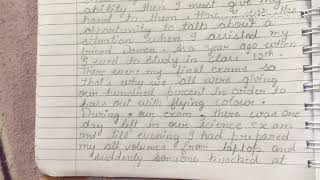 ability then I must give my
hand to them. Here I get the
opportunity to talk about a
situation when I assisted my
friend Woman. As a year ago when
I used to study in class 12th.
There were my final exams so
that's why we all were giving
our hundred percent in order to
pass out with flying colour.
During our exam, there was one
day left in our science exam
and till evening I had prepared
my all volumes from laptop and
suddenly someone knocked at